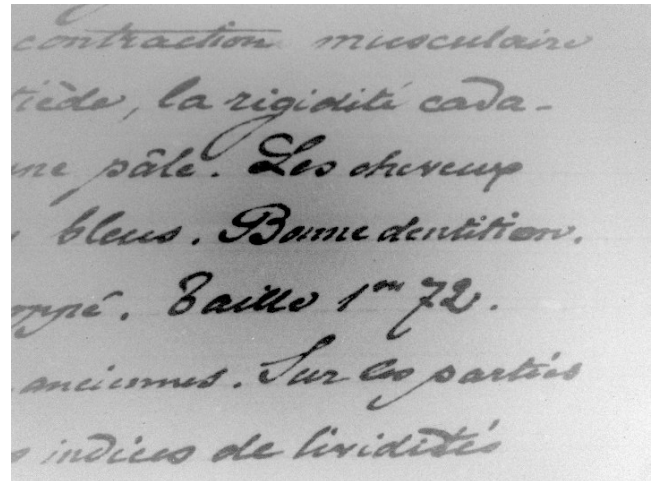 contraction musculaire
tiède, la rigidité cada-
pâle. Les cheveux
bleus. Bonne dentition.
Taille 1m 72.
anciennes. Sur les parties
indices de lividités